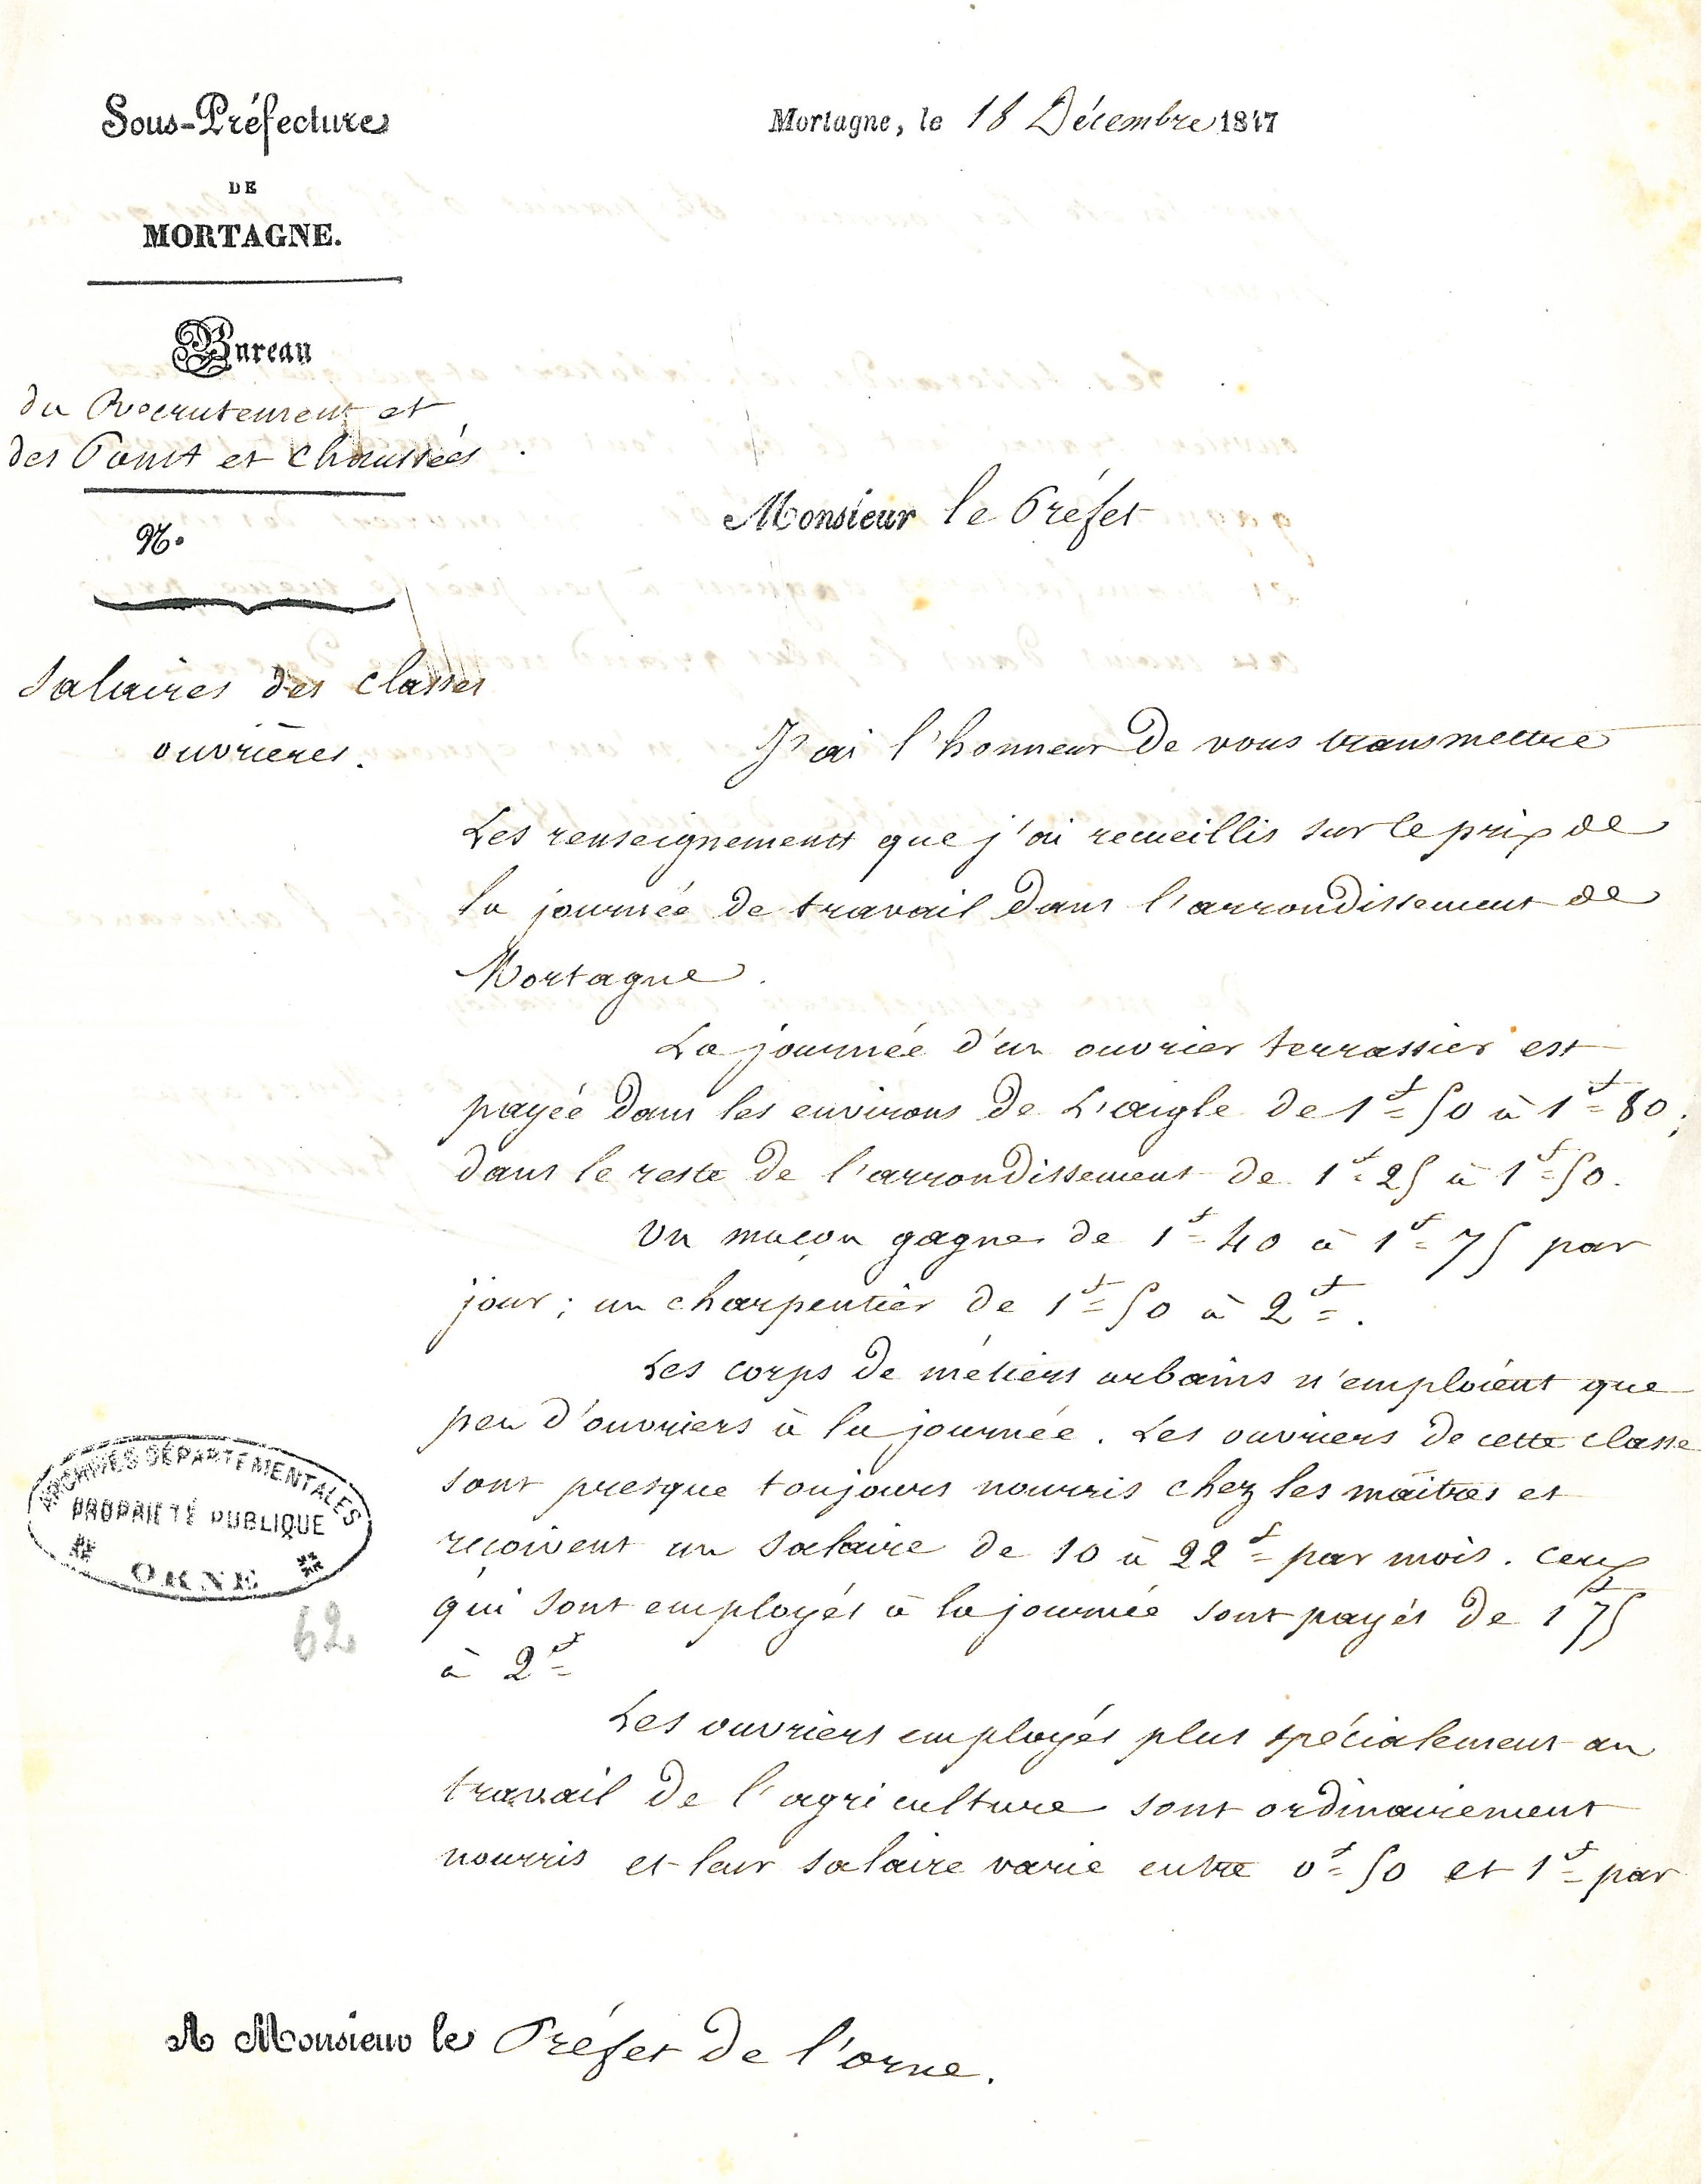 Sous-Préfecture
DE
MORTAGNE.
Bureau
du Recrutement et
des Ponts et Chaussées
N.º
Salaires des classes
ouvrières.
Mortagne, le 18 Décembre 1847
Monsieur le Préfet
J'ai l'honneur de vous transmettre
Les renseignements que j'ai recueillis sur le prix de
la journée de travail dans l'arrondissement de
Mortagne.
La journée d'un ouvrier terrassier est
payée dans les environs de L'aigle de 1f 50 à 1f 80;
dans le reste de l'arrondissement de 1f 25 à 1f 50.
Un maçon gagne de 1f 40 à 1f 75 par
jour; un charpentier de 1f 50 à 2f.
Les corps de métiers urbains n'emploient que
peu d'ouvriers à la journée. Les ouvriers de cette classe
sont presque toujours nourris chez les maitres et
reçoivent un salaire de 10 à 22f par mois. Ceux
qui sont employés à la journée sont payés de 1f 75
à 2f
Les ouvriers employés plus spécialement au
travail de l'agriculture sont ordinairement
nourris et leur salaire varie entre 0f 50 et 1f par
ARCHIVES DÉPARTEMENTALES
PROPRIÉTÉ PUBLIQUE
ORNE
62
A Monsieur le Préfet de l'orne.